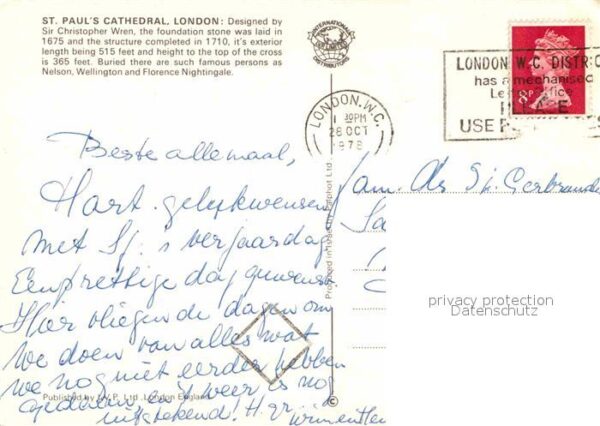 ST. PAUL'S CATHEDRAL, LONDON: Designed by
Sir Christopher Wren, the foundation stone was laid in
1675 and the structure completed in 1710, it's exterior
length being 515 feet and height to the top of the cross
is 365 feet. Buried there are such famous persons as
Nelson, Wellington and Florence Nightingale.
INTERNATIONAL
DISTRIBUTORS
LONDON. W.C.
30PM
28 OCT
1978
LONDON W.C. DISTRIC
has a mechanised
Office
USE
8P
Beste allemaal,
Hart. gelukwensen
met Sj.'s verjaardag
Een prettige dag gewenst.
Hier vliegen de dagen om
We doen van alles wat
we nog niet eerder hebben
gedaan en 't weer is nog
uitstekend!
Fam.
Produced in Israel by Palphot Ltd.
Published by Ltd., London England
©
privacy protection
Datenschutz